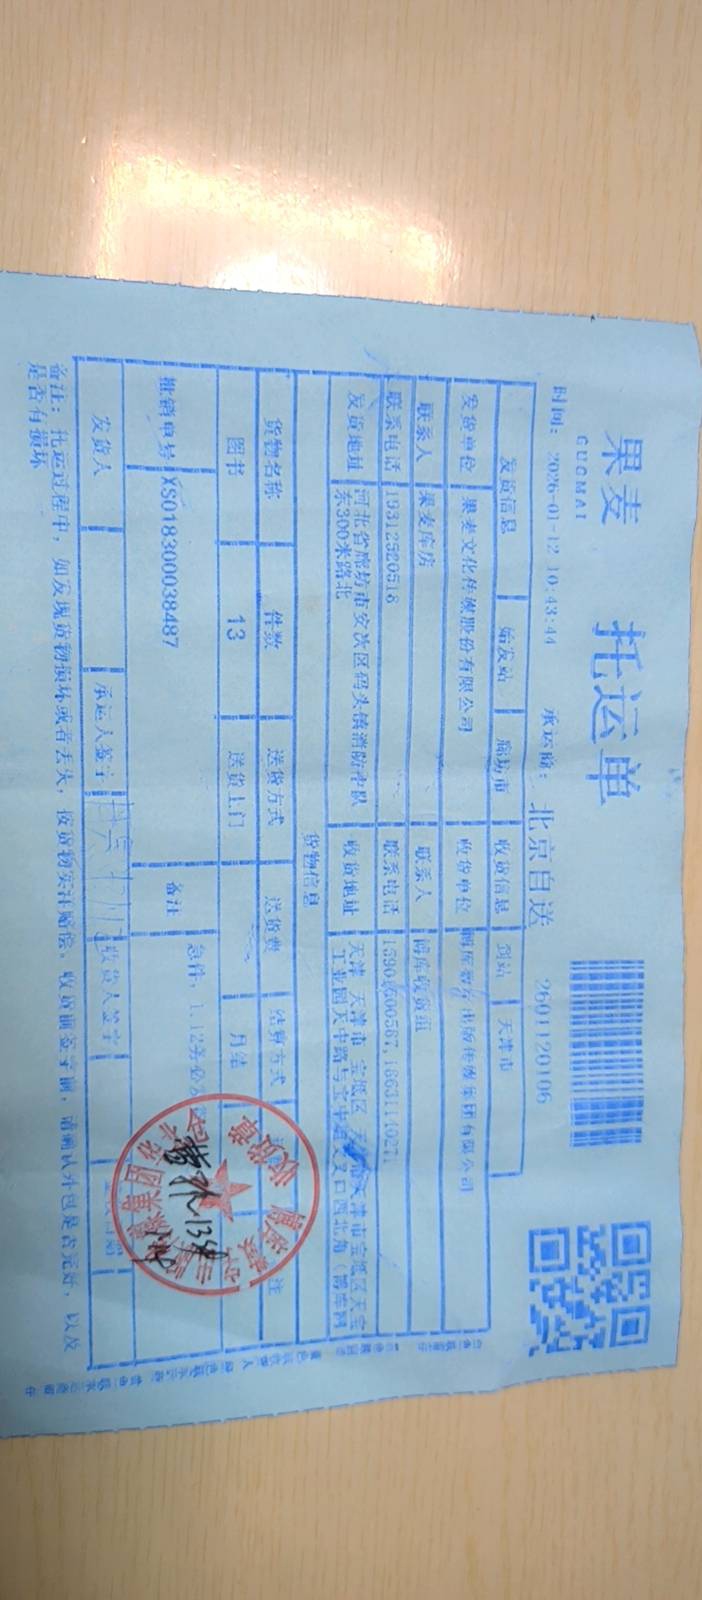 果麦 托运单
GUOMAI
时间： 2026-01-12 10:43:44 承运商： 北京自送 2601120106
发货信息 始发站 廊坊市 收货信息 到站 天津市
发货单位 果麦文化传媒股份有限公司 收货单位 博库数字出版传媒集团有限公司
联系人 果麦库房 联系人 博库收货组
联系电话 19312520518 联系电话
发货地址 河北省廊坊市安次区码头镇消防中队东300米路北 收货地址 天津 天津市 宝坻区 天津市天津市宝坻区天宝工业园天中路与宝中道交叉口西北角（博库网
货物信息
货物名称: 件数 送货方式 送货费 结算方式 注
图书 13 送货上门 月结
批销单号 XS018300038487 备注 急件，1.12务必
发货人 承运人签字 收货人签字
备注：托运过程中，如发现货物损坏或者丢失，按货物实际赔偿，收货前签字前，请确认外包是否完好，以及
是否有损坏
收货章